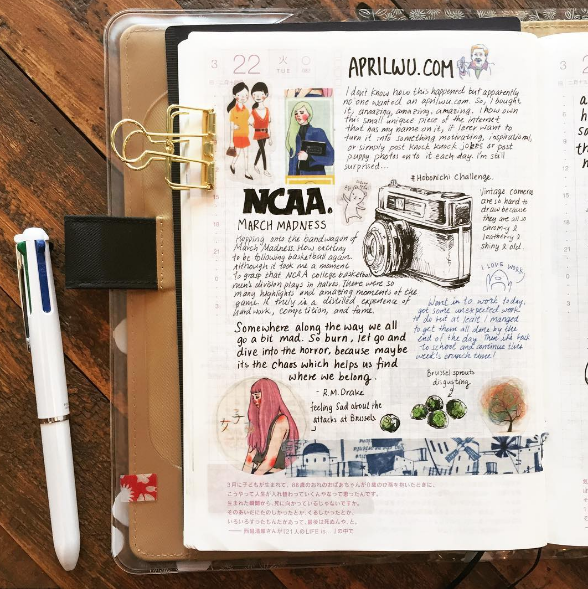 3
22
火
TUE
APRILWU.COM
I don't know how this happened but apparently
no one wanted an aprilwu.com. So, I bought
it, amazing, amazing, amazing. I now own
this small unique piece of the internet
that has my name on it, if I ever want to
turn it into something motivating, inspirational,
or simply post knock knock jokes or post
puppy photos onto it each day. I'm still
surprised...
#Hobonichi Challenge.
Vintage camera
are so hard to
draw because
they are all so
chromy &
leathery &
shiny & old.
NCAA.
MARCH MADNESS
Hopping onto the bandwagon of
March Madness. How exciting
to be following basketball again.
Although it took me a moment
to grasp that NCAA college basketball
men's division plays in halves. There were so
many highlights and amazing moments of the
game. It truly is a distilled experience of
hard work, competition, and fame.
I LOVE WORK
Went in to work today,
got some unexpected work
to do but at least I managed
to get them all done by the
end of today. Then it's back
to school and continue this
week's crunch time!
Somewhere along the way we all
go a bit mad. So burn, let go and
dive into the horror, because maybe
its the chaos which helps us find
where we belong.
- R.M. Drake
feeling sad about the
attacks at Brussels
Brussel sprouts
disgusting
3月に子どもが生まれて、